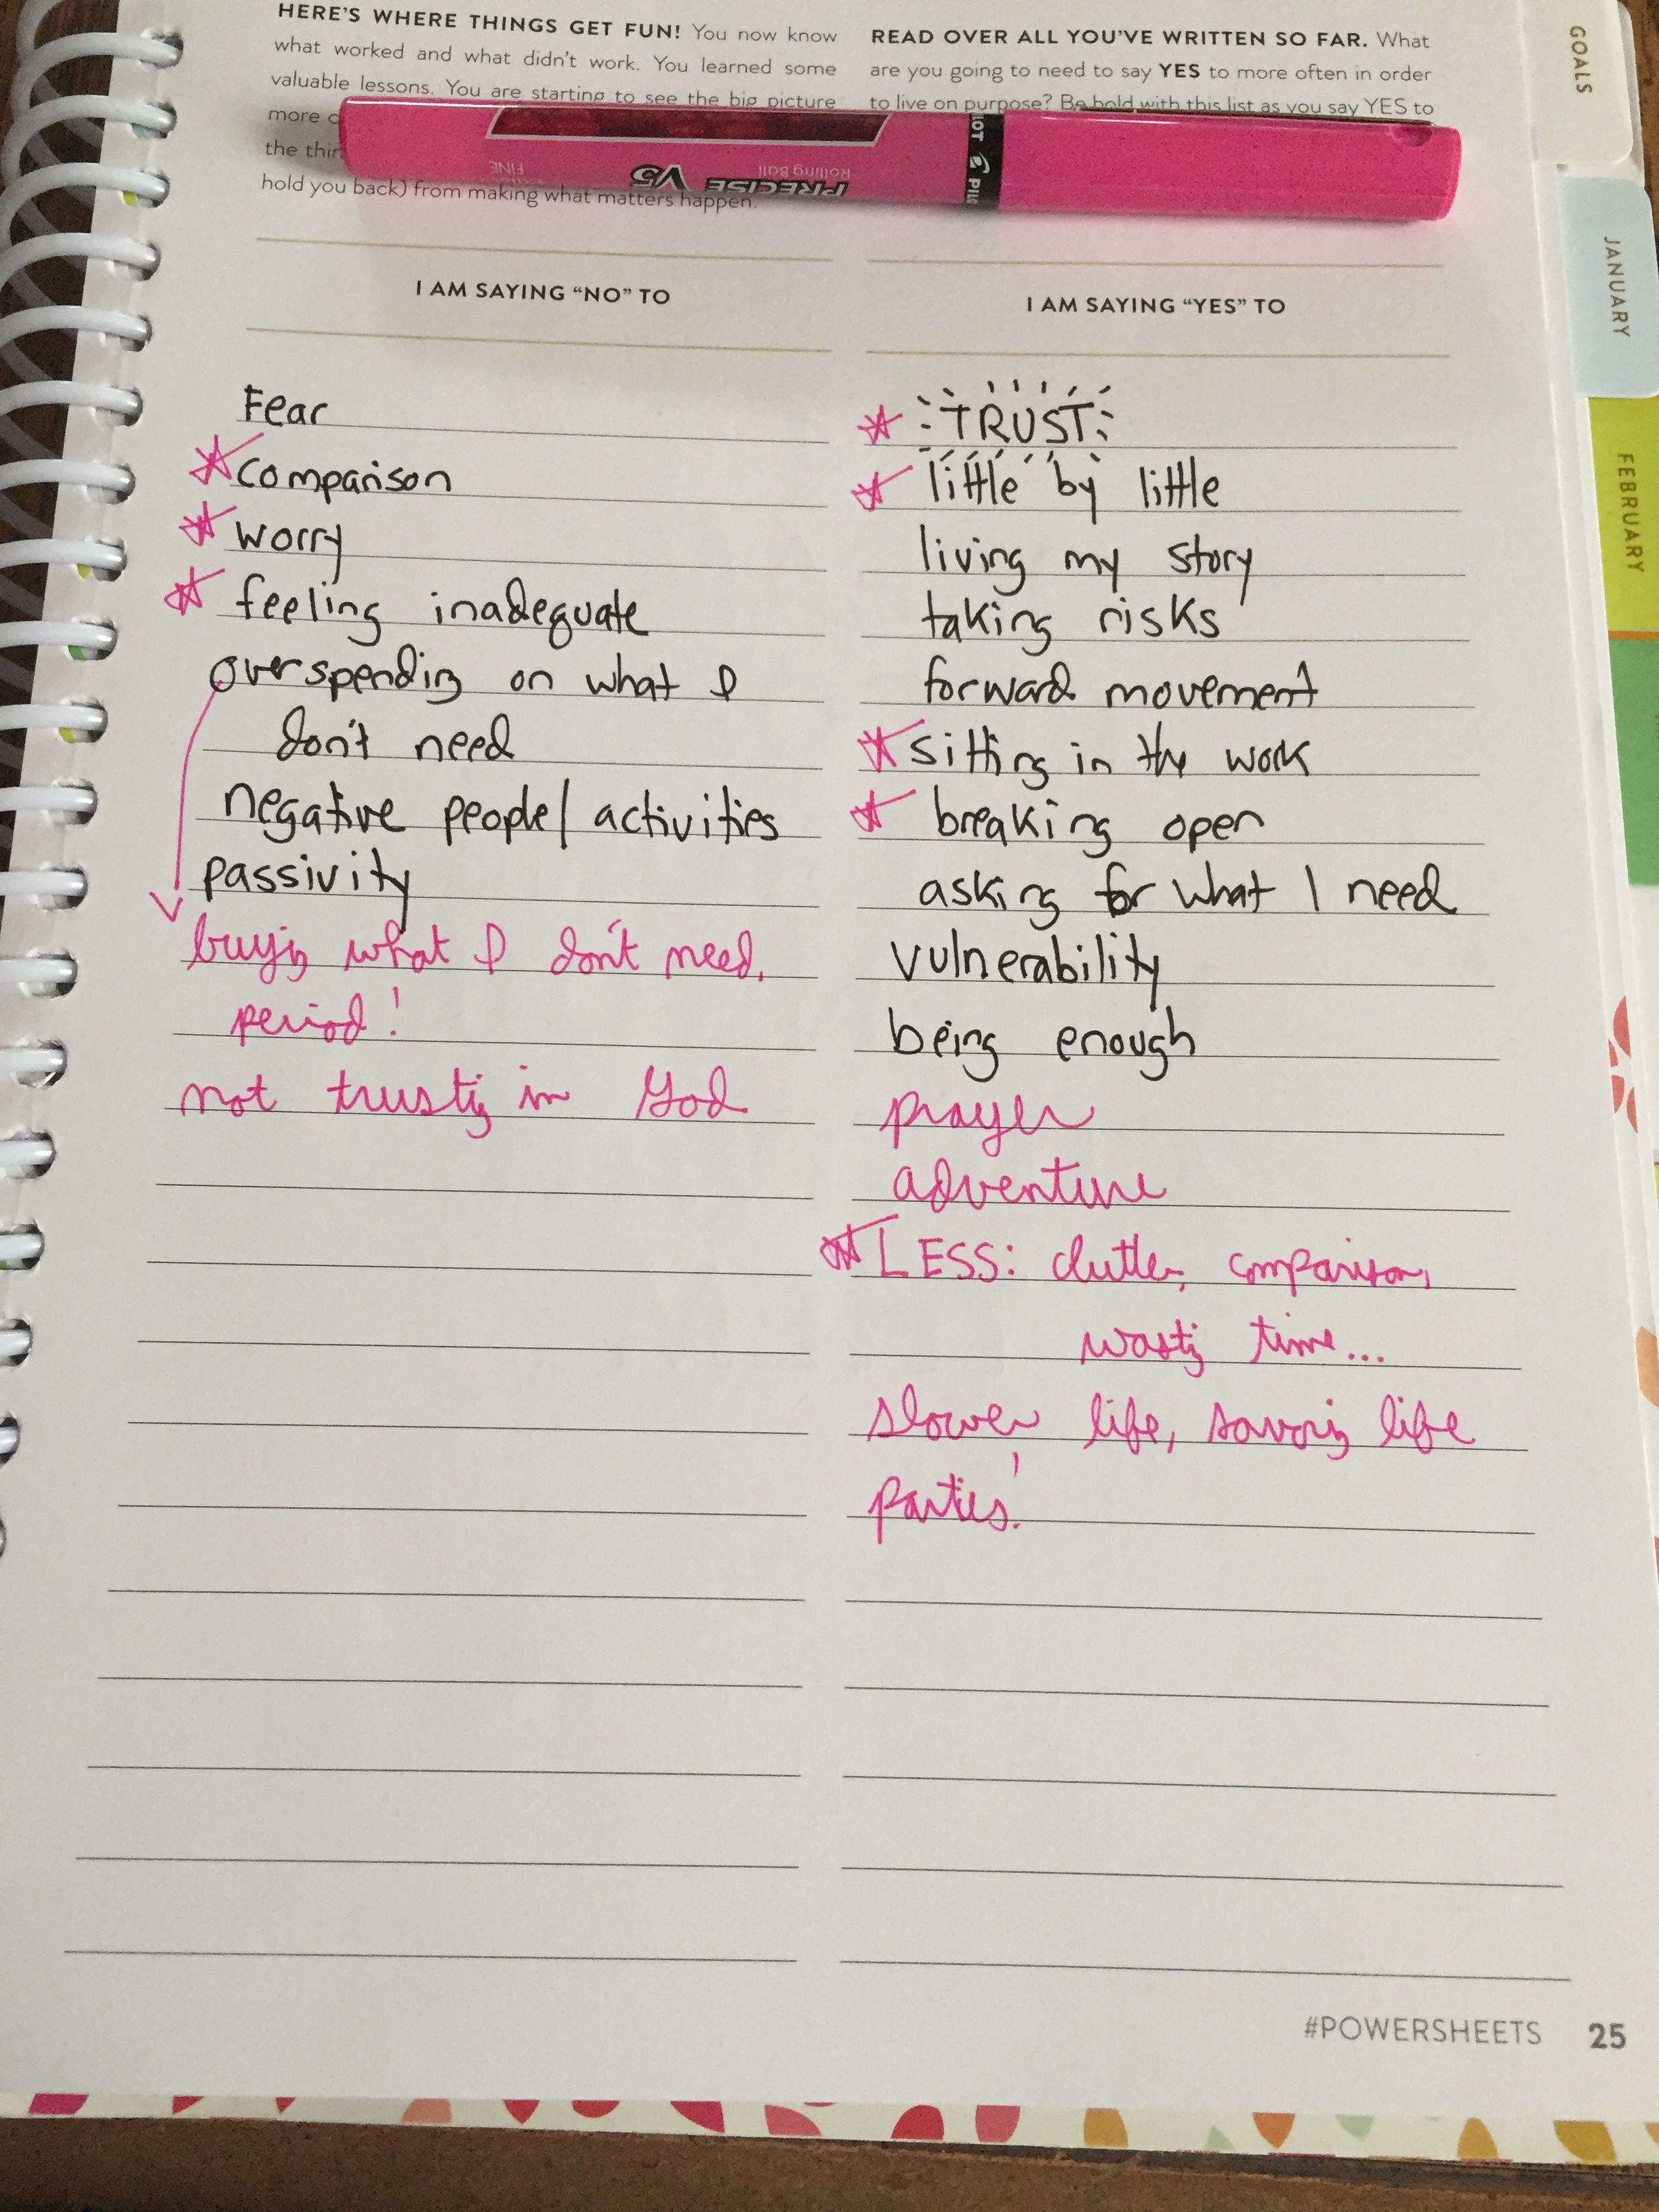 HERE'S WHERE THINGS GET FUN! You now know
what worked and what didn't work. You learned some
valuable lessons. You are starting to see the big picture
more
the
hold you back) from making what matters happen.
READ OVER ALL YOU'VE WRITTEN SO FAR. What
are you going to need to say YES to more often in order
to live on purpose? Be bold with this list as you say YES to
FINE
PRECISE V5
Rolling Ball
PILOT
I AM SAYING "NO" TO
Fear
comparison
worry
feeling inadequate
overspending on what I
don't need
negative people/activities
passivity
buying what I don't need.
period!
not trusting in God
I AM SAYING "YES" TO
TRUST
little by little
living my story
taking risks
forward movement
sitting in the work
breaking open
asking for what I need
vulnerability
being enough
prayer
adventure
LESS: clutter, comparison,
wasting time...
slower life, savoring life
parties!
#POWERSHEETS 25
GOALS
JANUARY
FEBRUARY